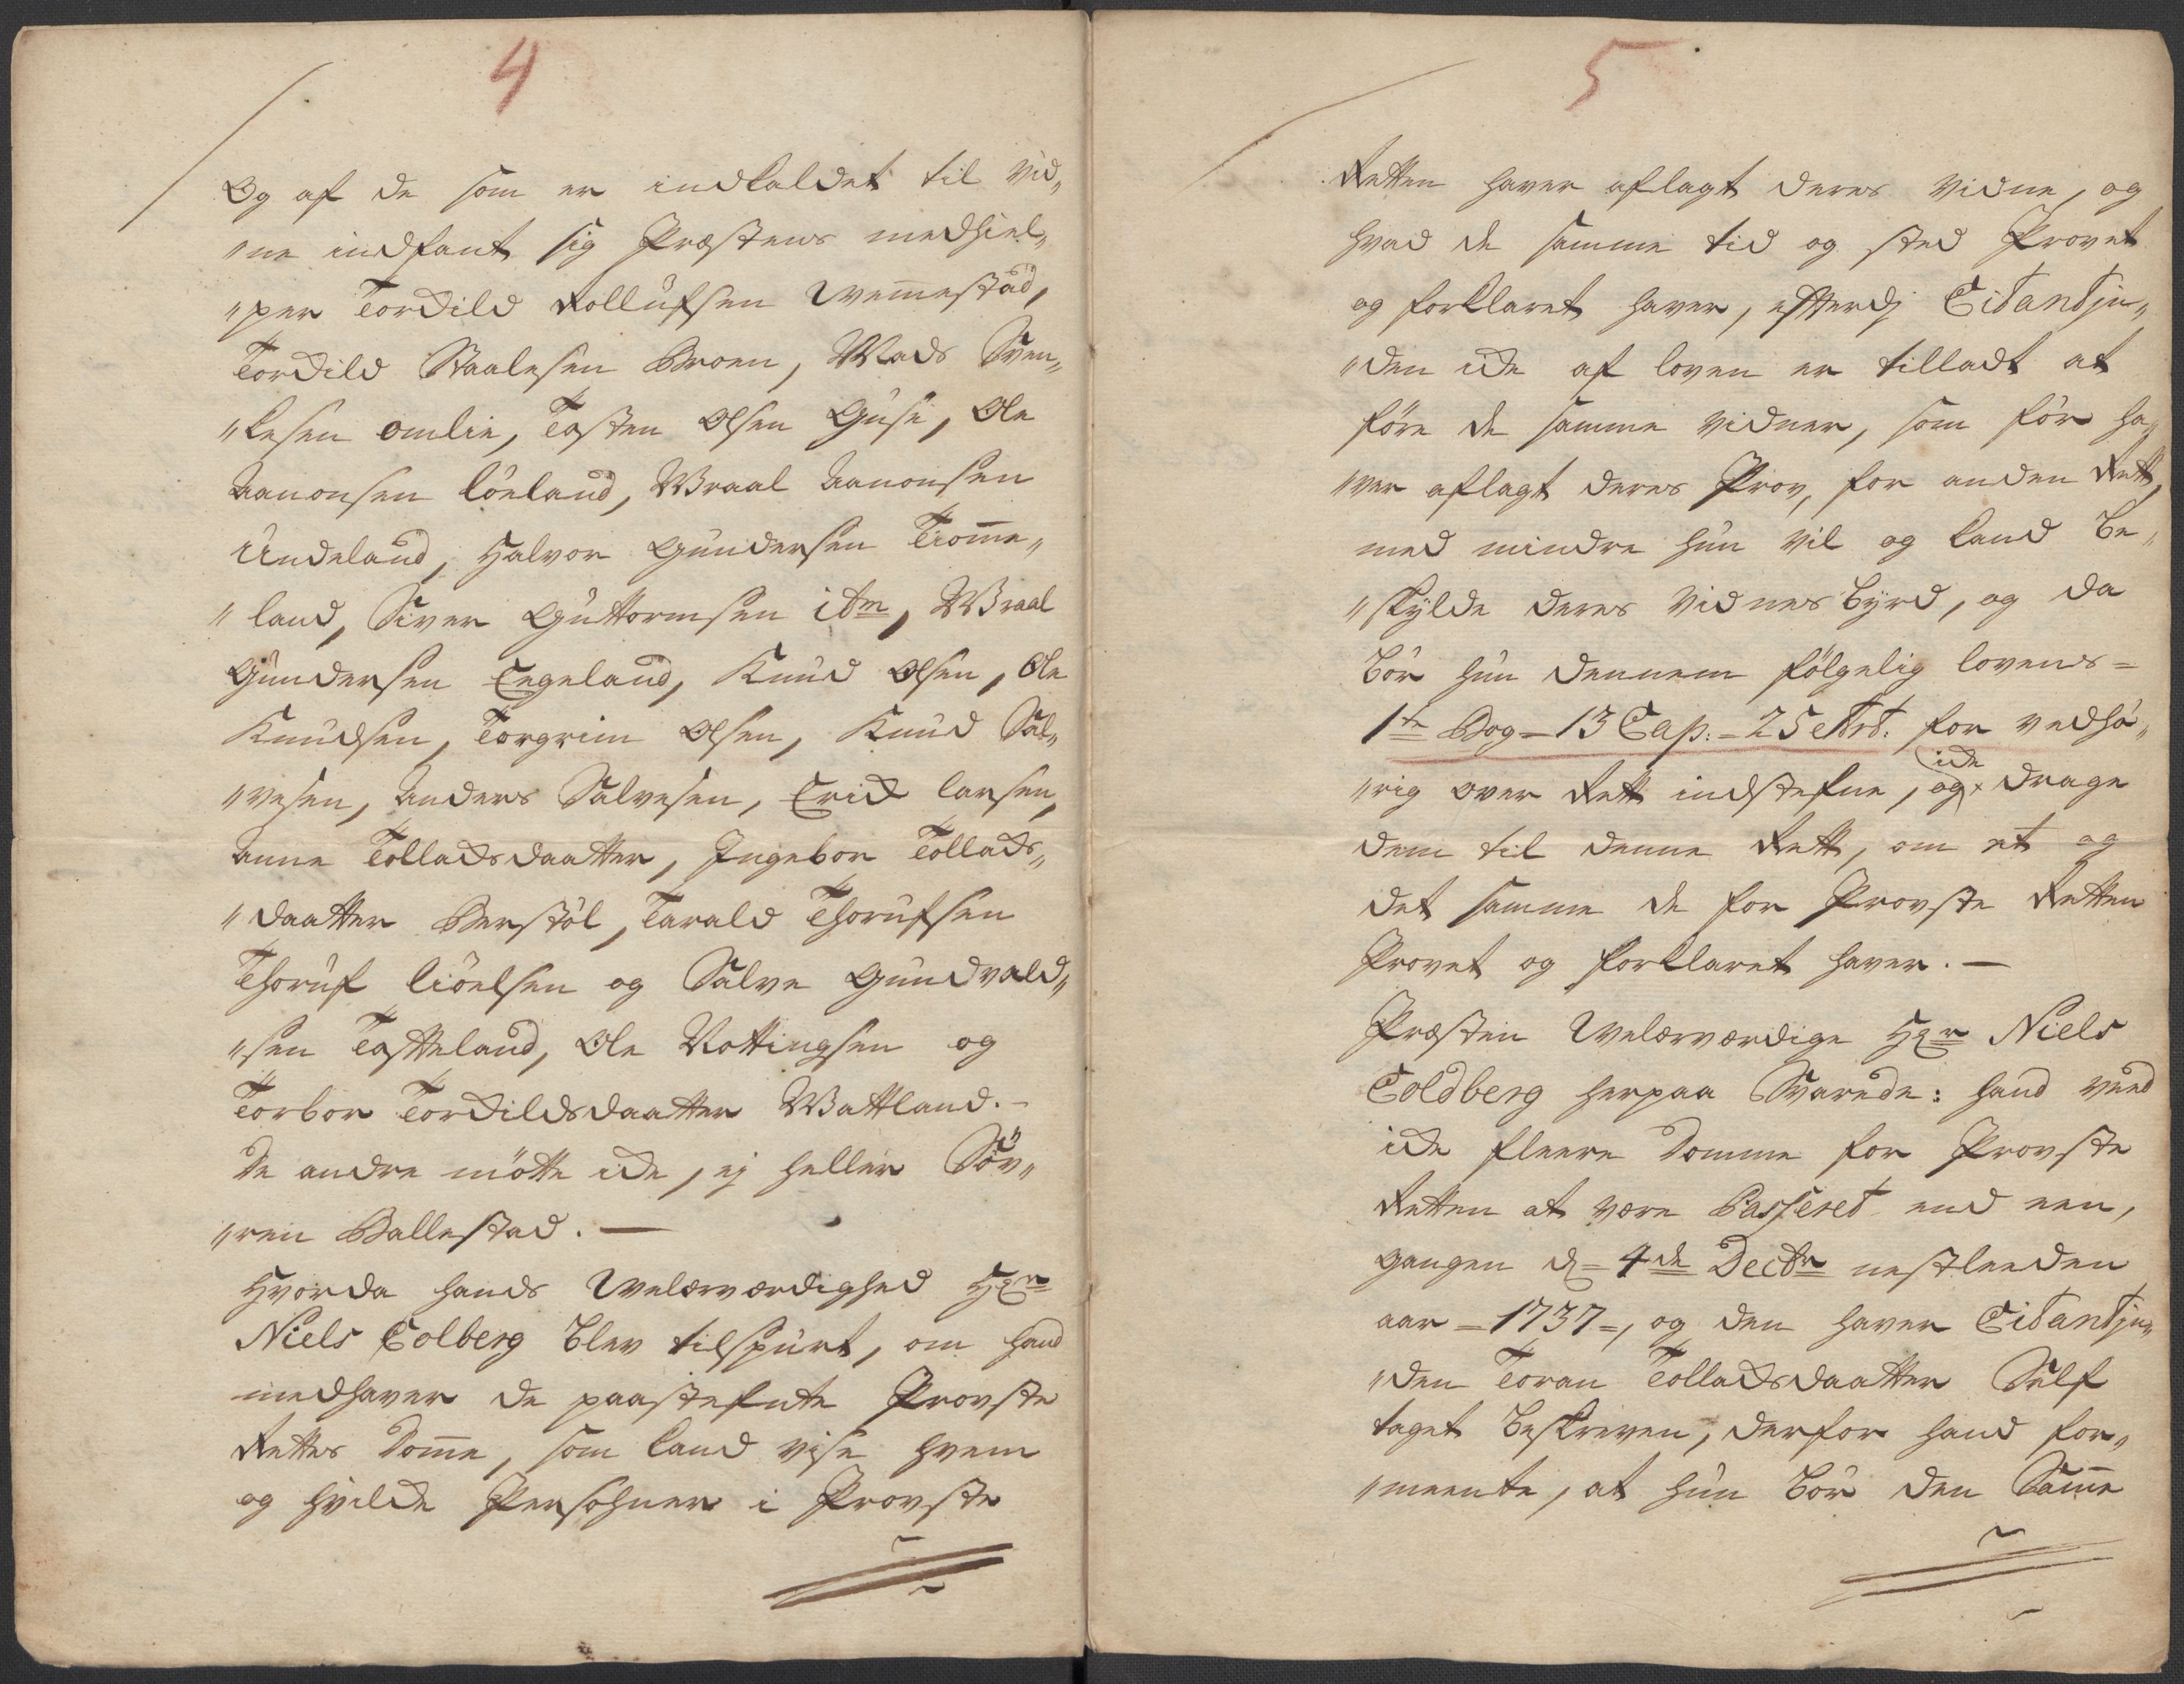 4
Og af de som er indkaldet til vid„
„ne indfant sig Præstens medhiel„
„per Torkild Rollufsen Wemmestad,
Torkild Staalesen Broen, Mads Sven„
„kesen omlie, Tosten Olsen Guse, Ole
Aanonsen löeland, Wraal Aanonsen
Undeland, Halvor Gundersen Tiomme„
„land, Siver Guttormsen itm, Wraal
Gundersen Engeland, Knud Olsen, Ole
Knudsen, Torgrim Olsen, Knud Sal„
„vesen, Anders Salvesen, Erick larsen,
Anne Tollacksdaatter, Ingebor Tollacks„
„daatter Berstöl, Tarald Thorufsen
Thoruf liöelsen og Salve Gundvald„
„sen Tostteland, Ole Nottingsen og
Torbor Torkildsdaatter Wattland.-
De andre mötte icke, ej heller Söv„
„ren Ballestad. —
Hvorda hands Welærværdighed Hr
Niels Colberg blev tilspurt, om hand
medhaver de paastefnte Provste
Rettes Domme, som kand vise hvem
og hvilcke Persohner i Provste
5
Retten haver aflagt deres vidne, og
hvad de samme tid og sted Provet
og forklaret haver, efterdj Citantjn„
„den icke af loven er tilladt at
före de samme vidner, som för ha„
„ver aflagt deres Prov, for anden Rett,
med mindre hun vil og kand be„
„skylde deres vidnesbyrd, og da
bör hun dennem fölgelig lovens=
1te Bog=13 Cap:=25 Art: for vedhö„
„rig over Rett indstefne, og icke drage
dem til denne Rett, om et og
det samme de for Provste Retten
Provet og forklaret haver. —
Præsten Welærværdige Hr Niels
Coldberg herpaa Svarede: hand veed
icke fleere Domme for Provste
Retten at være Passeret end een,
gangen d= 4de Decbr nestleeden
aar =1737=, og den haver Citantjn„
„den Toran Tollacksdaatter Self
taget beskreven, derfor hand for„
„meente, at hun bör den Samme